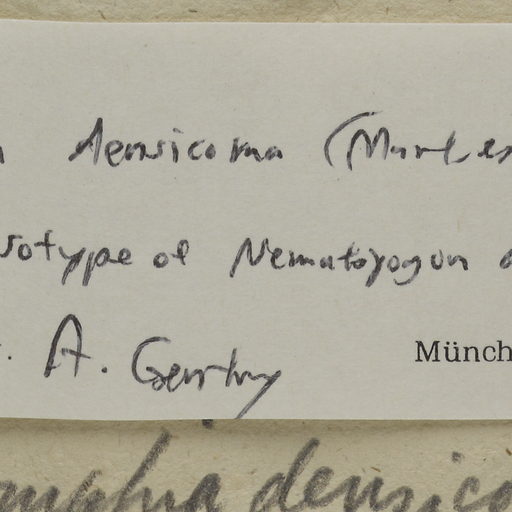 densicoma (Mart ex
otype of Nematopogon
A. Gentry
Münch
densico